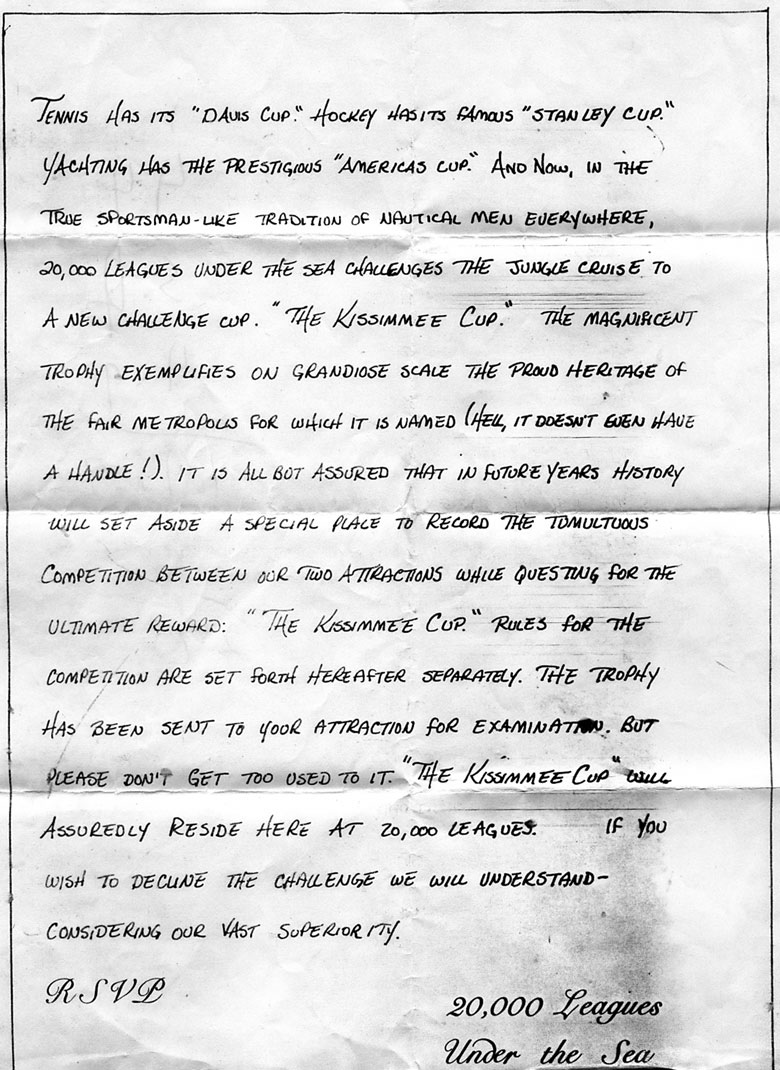 Tennis has its "Davis Cup." Hockey has its famous "Stanley Cup."
Yachting has the prestigious "Americas Cup." And now, in the
true sportsman-like tradition of nautical men everywhere,
20,000 Leagues Under the Sea challenges the Jungle Cruise to
a new challenge cup. "The Kissimmee Cup." The magnificent
trophy exemplifies on grandiose scale the proud heritage of
the fair metropolis for which it is named (Hell, it doesn't even have
a handle!). It is all but assured that in future years history
will set aside a special place to record the tumultuous
competition between our two attractions while questing for the
ultimate reward: "The Kissimmee Cup." Rules for the
competition are set forth hereafter separately. The trophy
has been sent to your attraction for examination. But
please don't get too used to it. "The Kissimmee Cup" will
assuredly reside here at 20,000 Leagues. If you
wish to decline the challenge we will understand-
considering our vast superiority.
RSVP
20,000 Leagues
Under the Sea